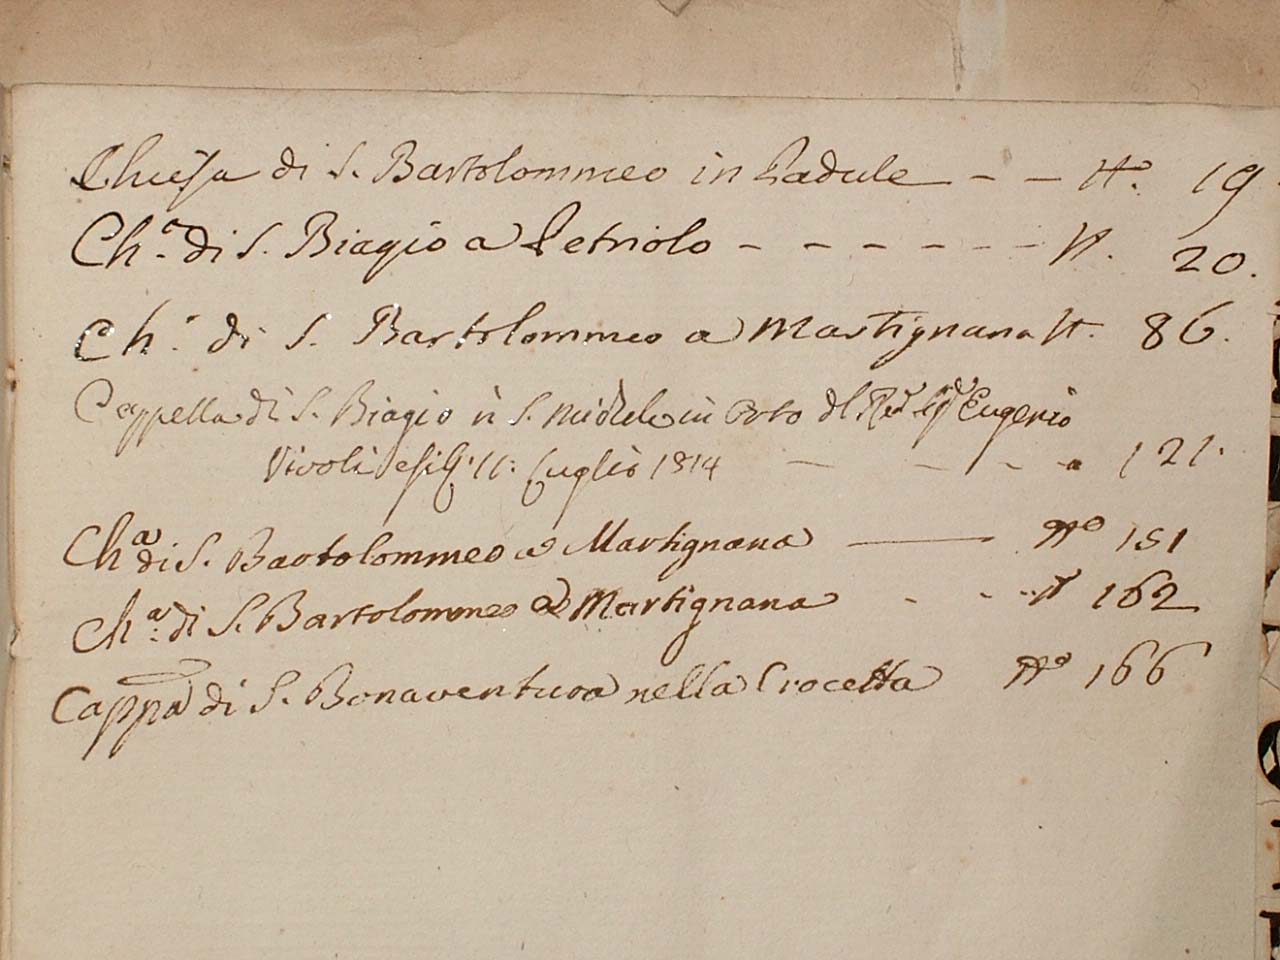 Chiesa di S. Bartolommeo in Padule - - N.o 19
Ch.a di S. Biagio a Petriolo - - - - - - - N. 20.
Ch.a di S. Bartolommeo a Martignana N. 86.
Cappella di S. Biagio in S. Michele in Orto del Eugenio
Vivoli 11. Luglio 1814 - - - - 121.
Ch.a di S. Bartolommeo a Martignana — N.o 151
Ch.a di S. Bartolommeo a Martignana - - - N 162
Cappa di S. Bonaventura nella Crocetta N.o 166